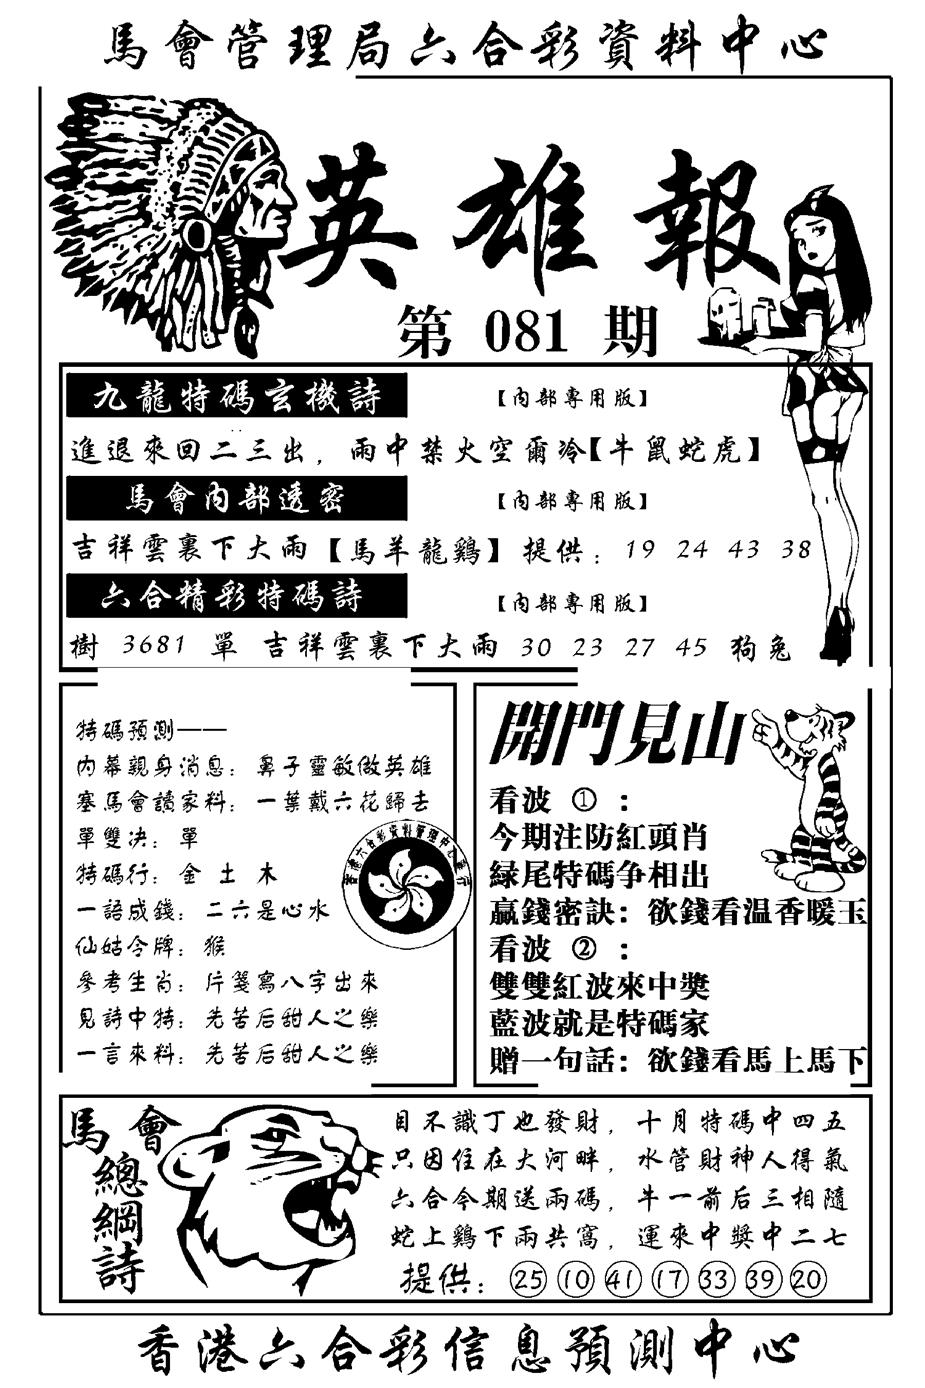 馬會管理局六合彩資料中心
英雄報
第 081 期
九龍特碼玄機詩 【內部專用版】
進退來回二三出，雨中禁火空爾冷【牛鼠蛇虎】
馬會內部透密 【內部專用版】
吉祥雲裏下大雨【馬羊龍鷄】提供：19 24 43 38
六合精彩特碼詩 【內部專用版】
樹 3681 單 吉祥雲裏下大雨 30 23 27 45 狗兔
特碼預測——
內幕親身消息：鼻子靈敏做英雄
塞馬會讀家料：一葉戴六花歸去
單雙决：單
特碼行：金 土 木
一語成錢：二六是心水
仙姑令牌：猴
參考生肖：片箋寫八字出來
見詩中特：先苦后甜人之樂
一言來料：先苦后甜人之樂
香港六合彩資料管理中心發行
開門見山
看波 ①：
今期注防紅頭肖
緑尾特碼争相出
贏錢密訣：欲錢看温香暖玉
看波 ②：
雙雙紅波來中獎
藍波就是特碼家
贈一句話：欲錢看馬上馬下
馬會
總綱詩
目不識丁也發財，十月特碼中四五
只因住在大河畔，水管財神人得氣
六合今期送兩碼，牛一前后三相隨
蛇上鷄下兩共窩，運來中獎中二七
提供：㉕ ⑩ ㊶ ⑰ ㉝ ㊴ ⑳
香港六合彩信息預測中心